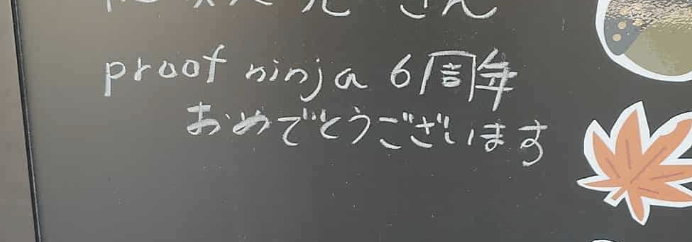 さん
proof ninja 6周年
おめでとうございます